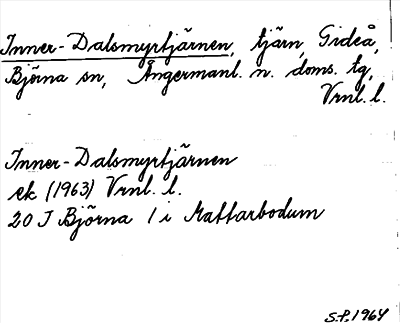 Inner-Dalsmyrtjärnen, tjärn, Gideå,
Björna sn, Ångermanl. n. doms. tg,
Vrnl. l.
Inner-Dalsmyrtjärnen
ek (1963) Vrnl. l.
20 J Björna 1 i Mattarbodum
S.P. 1964